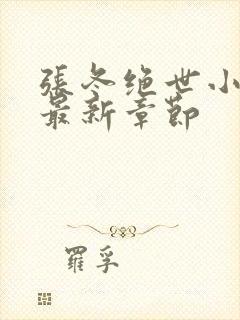 張冬绝世小
最新章節
羅孚